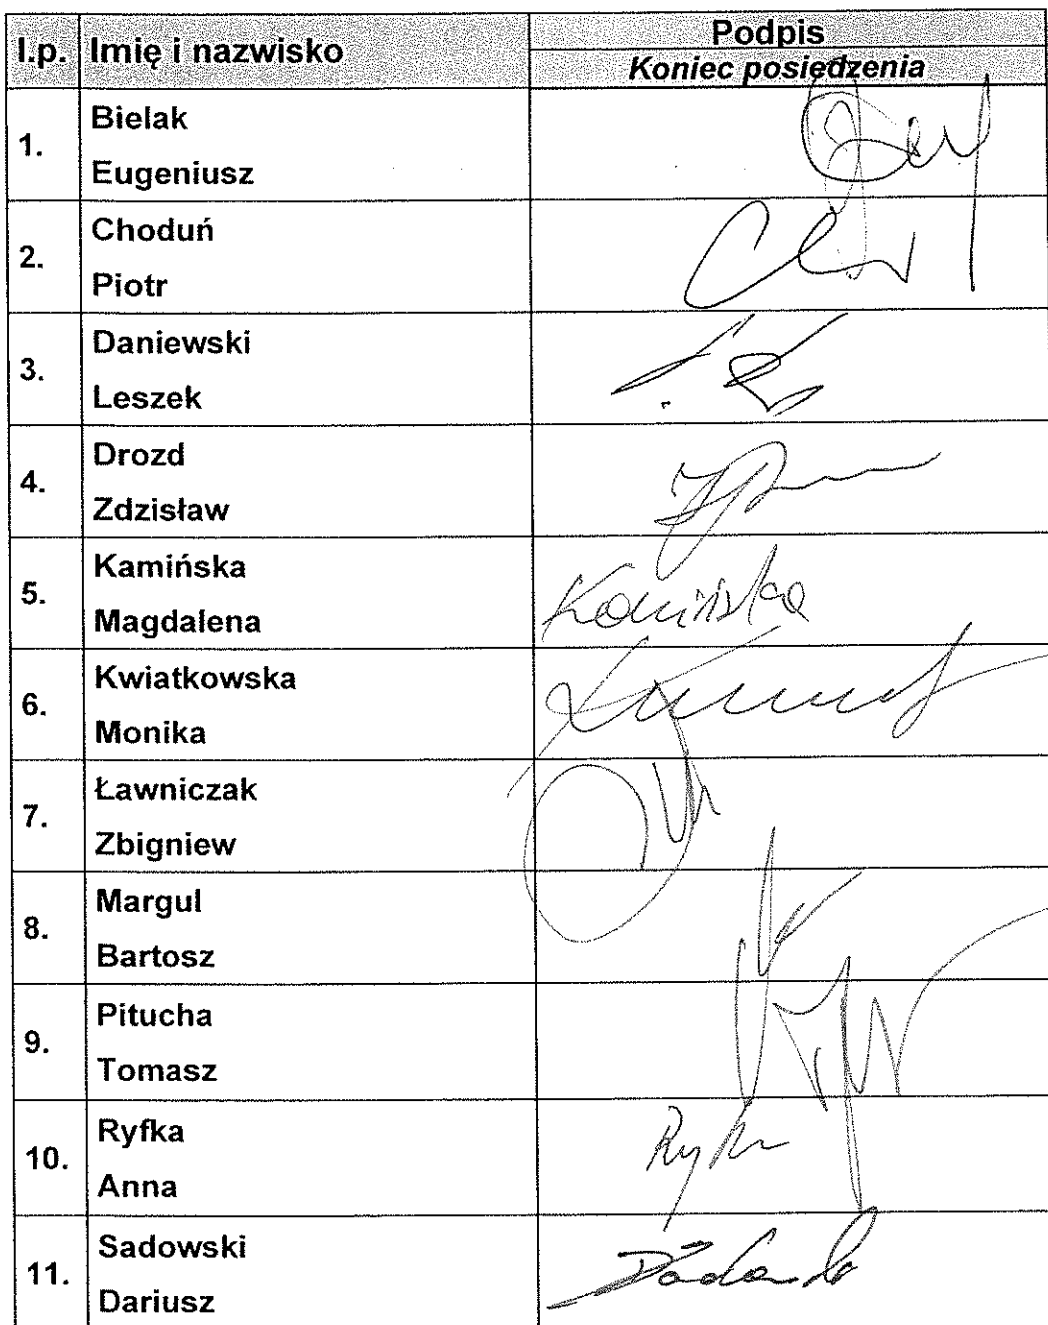 l.p. Imię i nazwisko Podpis
Koniec posiedzenia
1. Bielak
Eugeniusz
2. Choduń
Piotr
3. Daniewski
Leszek
4. Drozd
Zdzisław
5. Kamińska
Magdalena Kamińska
6. Kwiatkowska
Monika
7. Ławniczak
Zbigniew
8. Margul
Bartosz
9. Pitucha
Tomasz
10. Ryfka
Anna
11. Sadowski
Dariusz